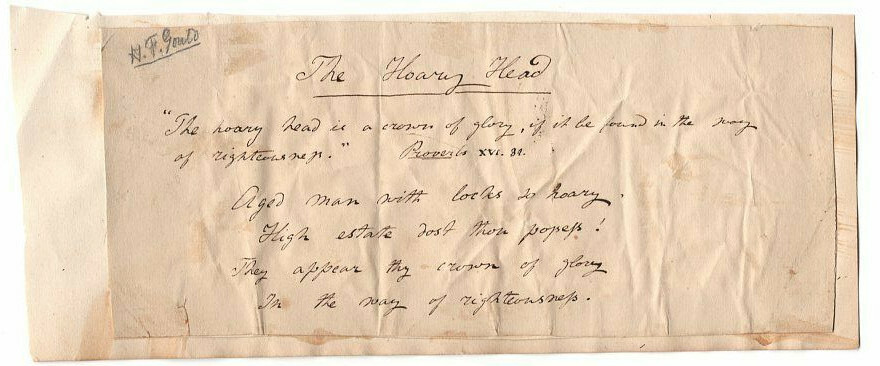 H. F. Gould
The Hoary Head
"The hoary head is a crown of glory, if it be found in the way
of righteousness." Proverbs XVI. 31.
Aged man with locks so hoary,
High estate dost thou possess!
They appear thy crown of glory
In the way of righteousness.